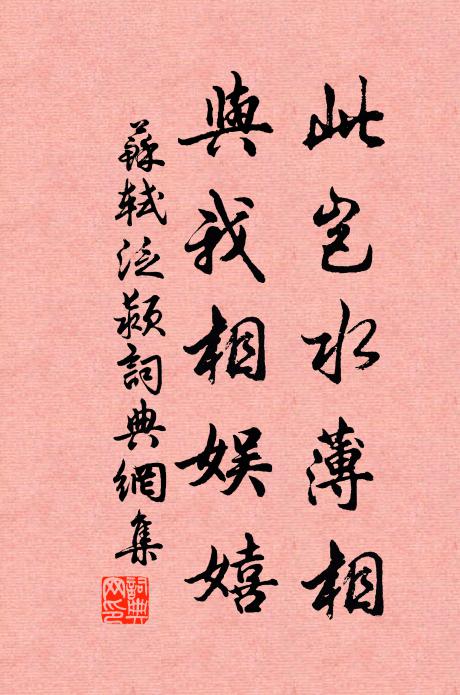 此豈水薄相
與我相娱嬉
蘇軾泛潁詞典網集
詞典网印